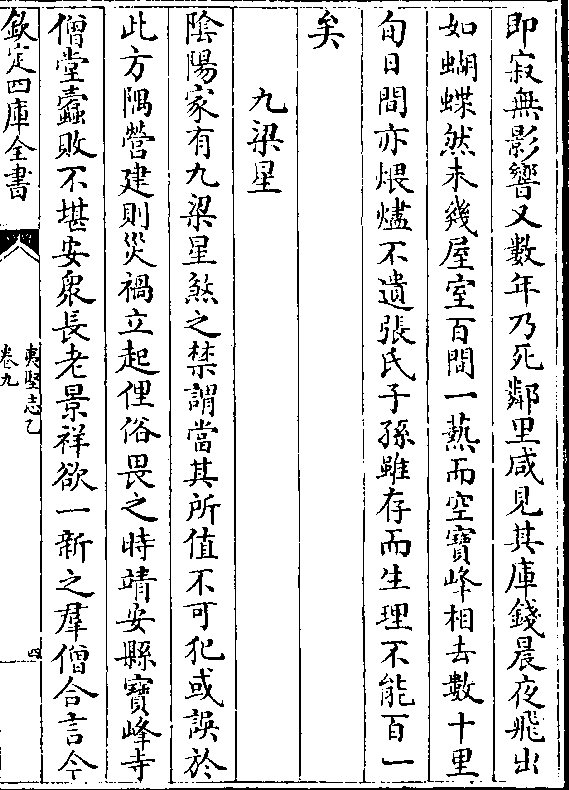 即寂無影響又數年乃死鄰里咸見其庫錢晨夜飛出
如蝴蝶然未幾屋室百間一爇而空寶峰相去數十里
旬日間亦煨燼不遺張氏子孫雖存而生理不能百一
矣
九梁星
陰陽家有九梁星煞之禁謂當其所值不可犯或誤於
此方隅營建則災禍立起俚俗畏之時靖安縣寶峰寺
僧堂蠹敗不堪安衆長老景祥欲一新之羣僧合言今
欽定四庫全書
夷堅志乙
卷九
四